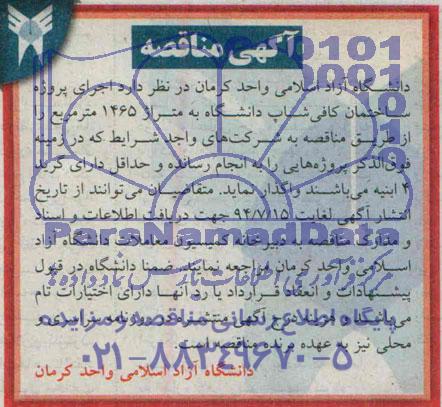 آگهی مناقصه
دانشگاه آزاد اسلامی واحد کرمان در نظر دارد اجرای پروژه
ساختمان کافی‌شاپ دانشگاه به متراژ ۱۴۶۵ مترمربع را
از طریق مناقصه به شرکت‌های واجد شرایط که در زمینه
فوق‌الذکر پروژه‌هایی را به انجام رسانده و حداقل دارای گرید
۴ ابنیه می‌باشند واگذار نماید. متقاضیان می‌توانند از تاریخ
انتشار آگهی لغایت ۹۴/۷/۱۵ جهت دریافت اطلاعات و اسناد
و مدارک مناقصه به دبیرخانه کمیسیون معاملات دانشگاه آزاد
اسلامی واحد کرمان مراجعه نمایند. ضمنا دانشگاه در قبول
پیشنهادات و انعقاد قرارداد یا رد آنها دارای اختیارات تام
می‌باشد و هزینه درج آگهی منتشره در روزنامه سراسری و
محلی نیز به عهده برنده مناقصه است.
دانشگاه آزاد اسلامی واحد کرمان
ParsNamadData
پایگاه اطلاع رسانی مناقصه و مزایده
۰۲۱-۸۸۳۴۹۶۷۰-۵